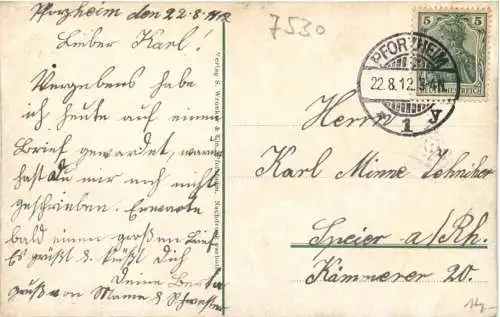 Pforzheim den 22.8.1912
Lieber Karl!
Vergebens habe
ich heute auf einen
Brief gewardet, warum
hast du mir noch nicht
geschrieben. Erwarte
bald einen großen Brief
Es grüßt & küßt dich
Deine Bertha
Gruß von Mama & Schwester
7530
5 5
DEUTSCHES REICH
PFORZHEIM
22.8.12.
1 y
Herrn
Karl Minne Techniker
Speier a/Rh.
Kämmerer 20.